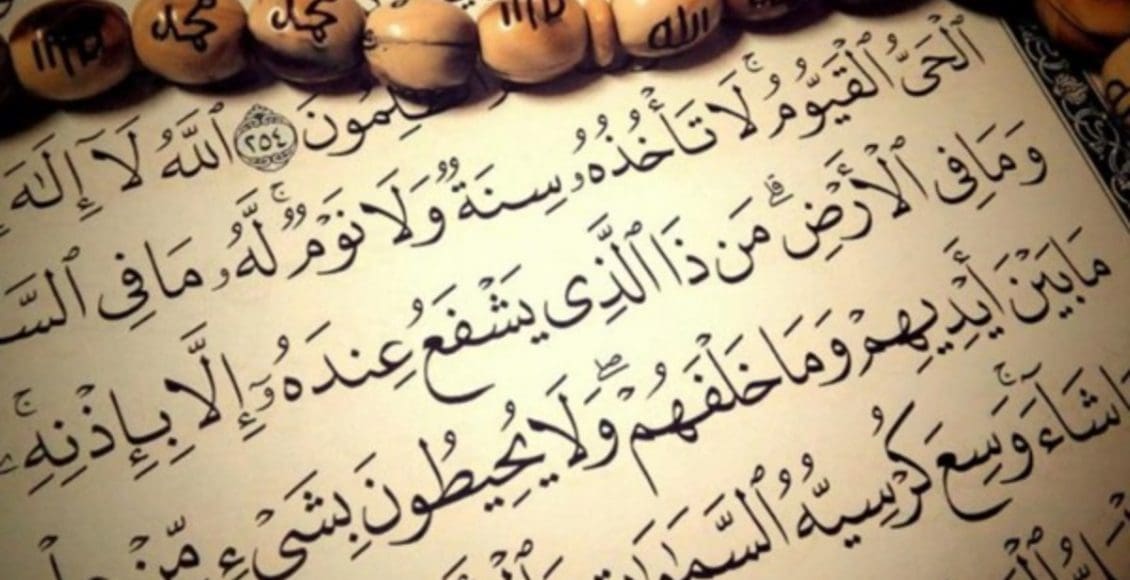 محمد
محمد
الله
ٱللَّهُ لَآ إِلَٰهَ ٢٥٤
ٱلْحَىُّ ٱلْقَيُّومُ ۚ لَا تَأْخُذُهُۥ سِنَةٌ وَلَا نَوْمٌ ۚ لَّهُۥ مَا فِى
وَمَا فِى ٱلْأَرْضِ ۗ مَن ذَا ٱلَّذِى يَشْفَعُ عِندَهُۥٓ إِلَّا بِإِذْنِهِۦ ۚ
مَا بَيْنَ أَيْدِيهِمْ وَمَا خَلْفَهُمْ ۖ وَلَا يُحِيطُونَ بِشَىْءٍ مِّنْ
شَآءَ ۚ وَسِعَ كُرْسِيُّهُ ٱلسَّمَٰوَٰتِ